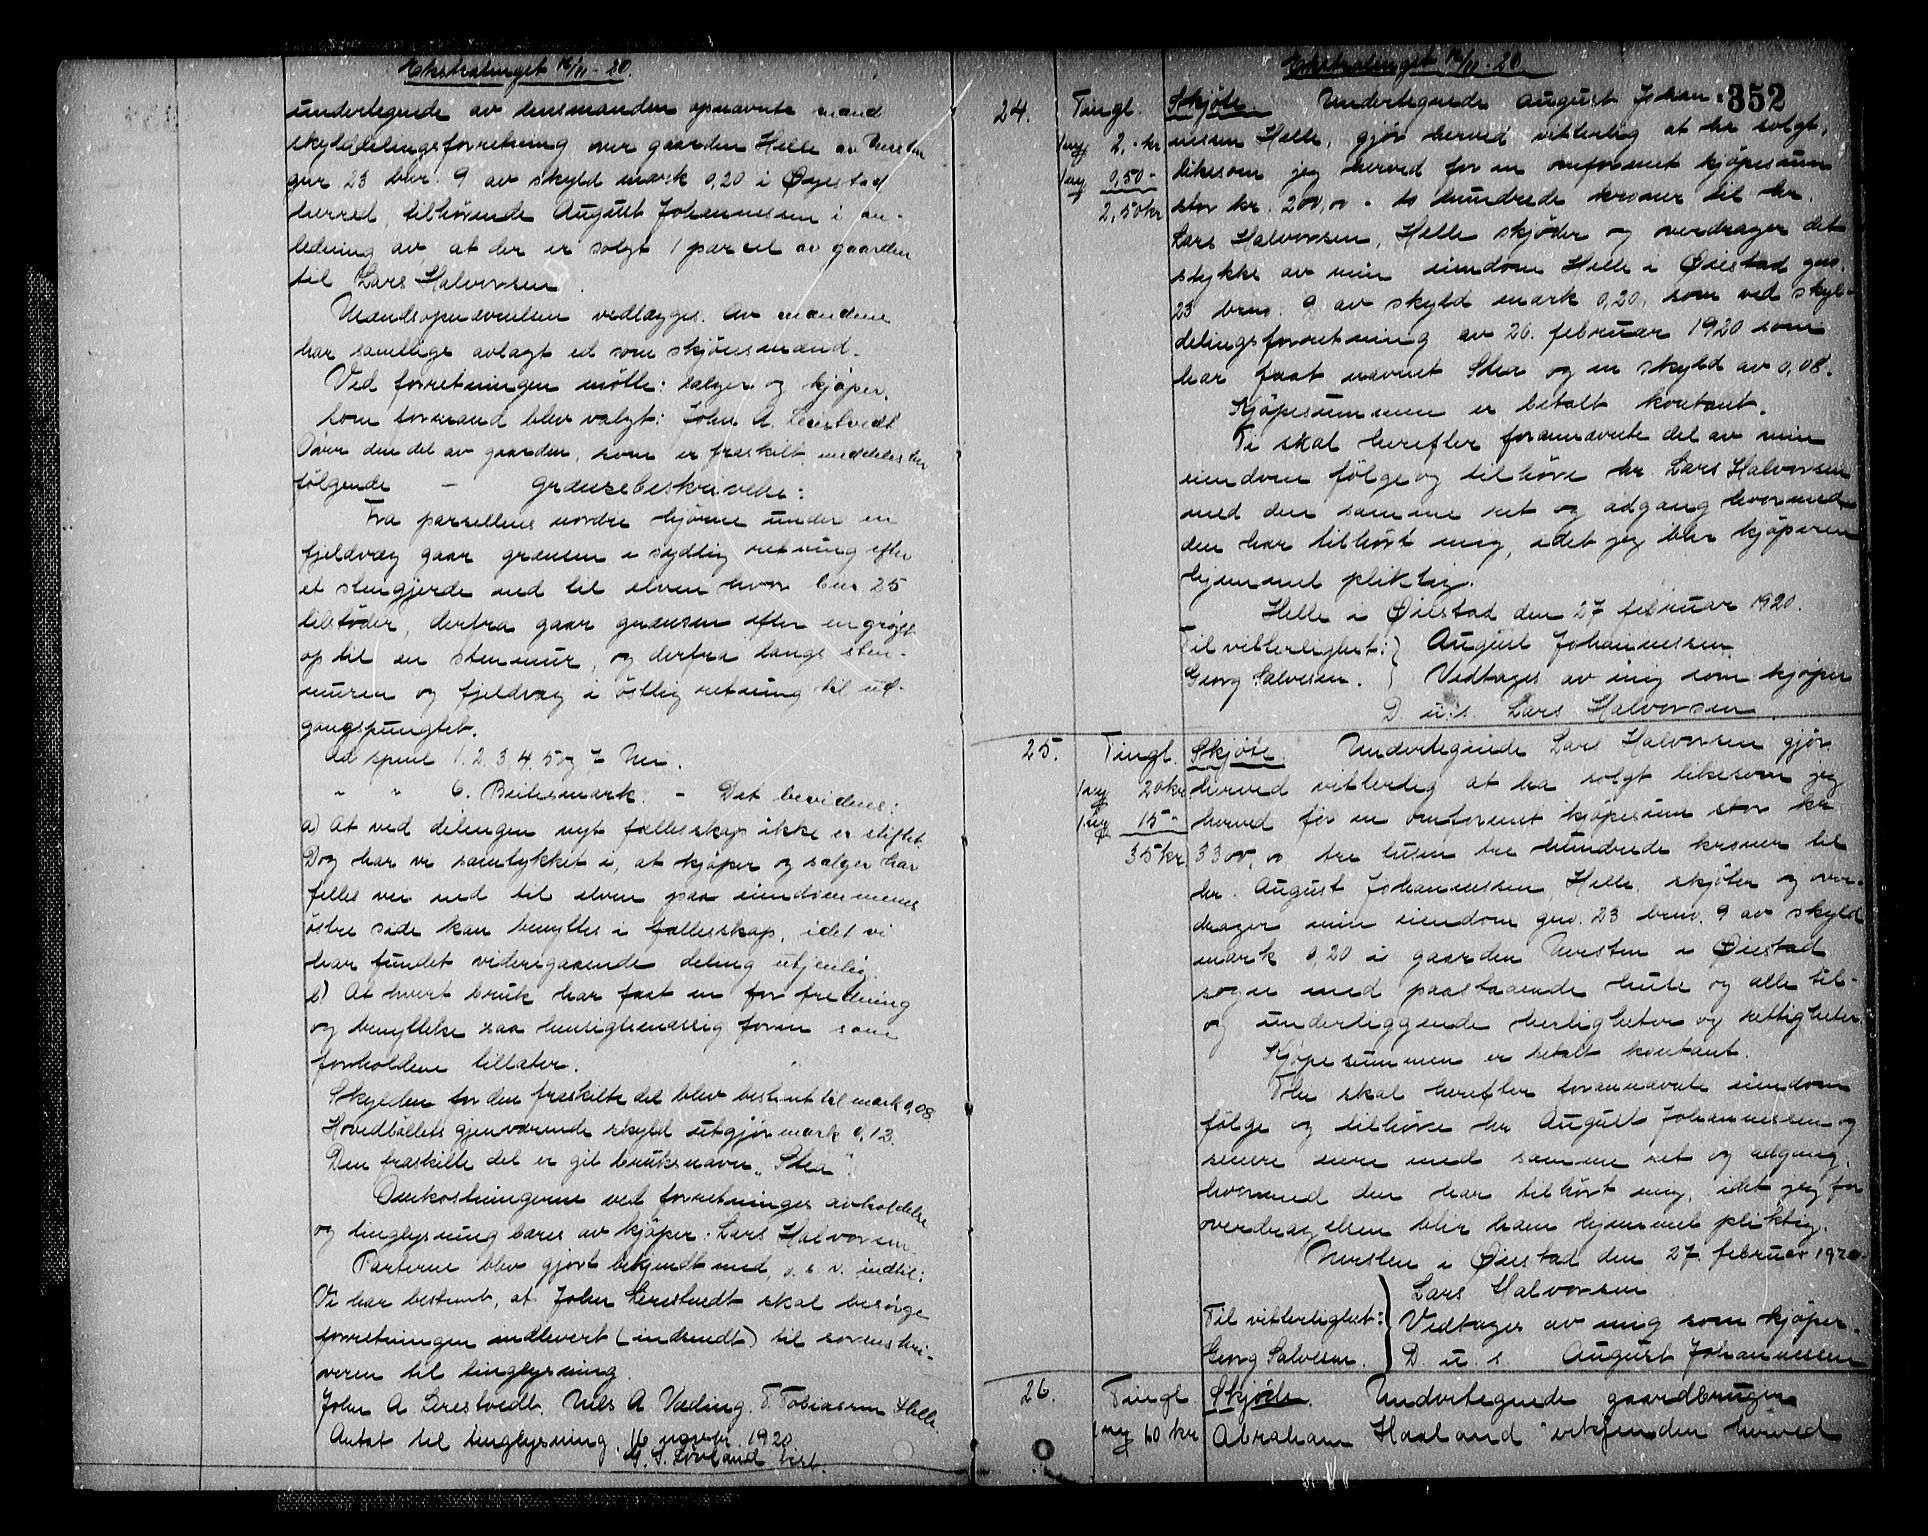 Ekstratinget 16/11-20.
undertegnede av lensmanden opnævnte mænd
skylddelingsforretning over gaarden Helle av Nersten
gnr 23 bnr. 9 av skyld mark 0,20 i Øyestad
herred, tilhørende August Johannessen i an-
ledning av, at der er solgt 1 parsel av gaarden
til Lars Halvorsen.
Mandsopnævnelsen vedlægges. Av mændene
har samtlige avlagt ed som skjønsmænd.
Ved forretningen møtte: sælger og kjøper.
Som formand blev valgt: John A. Lerestvedt
Over den del av gaarden, som er fraskilt, meddeles her
følgende - Grænsebeskrivelse:
Fra parsellens nordre hjørne under en
fjeldvæg gaar grænsen i sydlig retning efter
et stengjerde ned til elven hvor bnr 25
tilstøder, derfra gaar grænsen efter en grøft
op til en stenmur, og derfra langs sten-
muren og fjeldvæg i østlig retning til ud-
gangspungtet.
Ad spml 1. 2. 3. 4. 5 og 7 Nei.
" " 6. Beitesmark. - Det bevidnes:
a) At ved delingen nyt fællesskap ikke er stiftet.
Dog har vi samtykket i, at kjøper og sælger har
felles vei ned til elven paa eiendommenes
østre side kan benyttes i fællesskap, idet vi
har fundet videregaaende deling utjenlig.
b) At hvert bruk har faat en for fredning
og benyttelse saa hensigtsmæssig form som
forholdene tillater.
Skylden for den fraskilte del blev bestemt til mark 0,08
Hovedbøllets gjenværende skyld utgjør mark 0,12.
Den fraskilte del er git bruksnavn "Stea".
Omkostningerne ved forretninges avholdelse
og tinglysning bæres av kjøper: Lars Halvorsen.
Parterne blev gjort bekjendt med, o. s. v. indtil:
Vi har bestemt, at John Lerestvedt skal besørge
forretningen indlevert (indsendt) til sorenskri-
veren til tinglysning.
John A Lerestvedt. Nils A Væding. T. Tobiassen Helle.
Antat til tinglysning. 16 novbr. 1920
G. S. Løvland
Ekstratinget 16/11-20
352
24. Tingl. Skjøte. Undertegnede August Johan-
1ny 2,- kr. nessen Helle, gjør herved vitterlig at ha solgt,
1ny 0,50- likesom jeg herved for en omforenet kjøpesum
2,50 kr stor kr. 200,00 - to hundrede kroner til hr.
Lars Halvorsen, Helle skjøder og overdrager det
stykke av min eiendom Helle i Øiestad gno.
23 brno. 9 av skyld mark 0,20, som ved skyl-
delingsforretning av 26. februar 1920 som
har faat navnet Stea og en skyld av 0,08.
Kjøpesummen er betalt kontant.
Ti skal herefter forannævnte del av min
eiendom følge og tilhøre hr. Lars Halvorsen
med den samme ret og adgang hvormed
den har tilhørt mig, idet jeg blir kjøperen
hjemmel pliktig.
Helle i Øiestad den 27 februar 1920.
Til vitterlighet: } August Johannessen
Georg Salvesen. } Vedtages av mig som kjøper
D. u. s. Lars Halvorsen
25. Tingl. Skjøte Undertegnede Lars Halvorsen gjør
1ny 20kr. herved vitterlig at ha solgt likesom jeg
1ny 15- herved for en omforenet kjøpesum stor kr
35kr. 3300,00 tre tusen tre hundrede kroner til
hr. August Johannessen, Helle, skjøter og over-
drager min eiendom gno. 23 brno. 9 av skyld
mark 0,20 i gaarden Nersten i Øiestad
sogn med paastaaende huse og alle til-
og underliggende herligheter og rettigheter.
Kjøpesummen er betalt kontant.
Thi skal herefter forannævnte eiendom
følge og tilhøre hr August Johannessen og
senere eiere med samme ret og adgang,
hvormed den har tilhørt mig, idet jeg for
overdragelsen blir ham hjemmel pliktig.
Nersten i Øiestad den 27 februar 1920.
Lars Halvorsen
Til vitterlighet: } Vedtages av mig som kjøper.
Georg Salvesen. } D u s August Johannessen
26. Tingl Skjøte. Undertegnede gaardbruger
1ny 60 kr Abraham Haaland erkjender herved